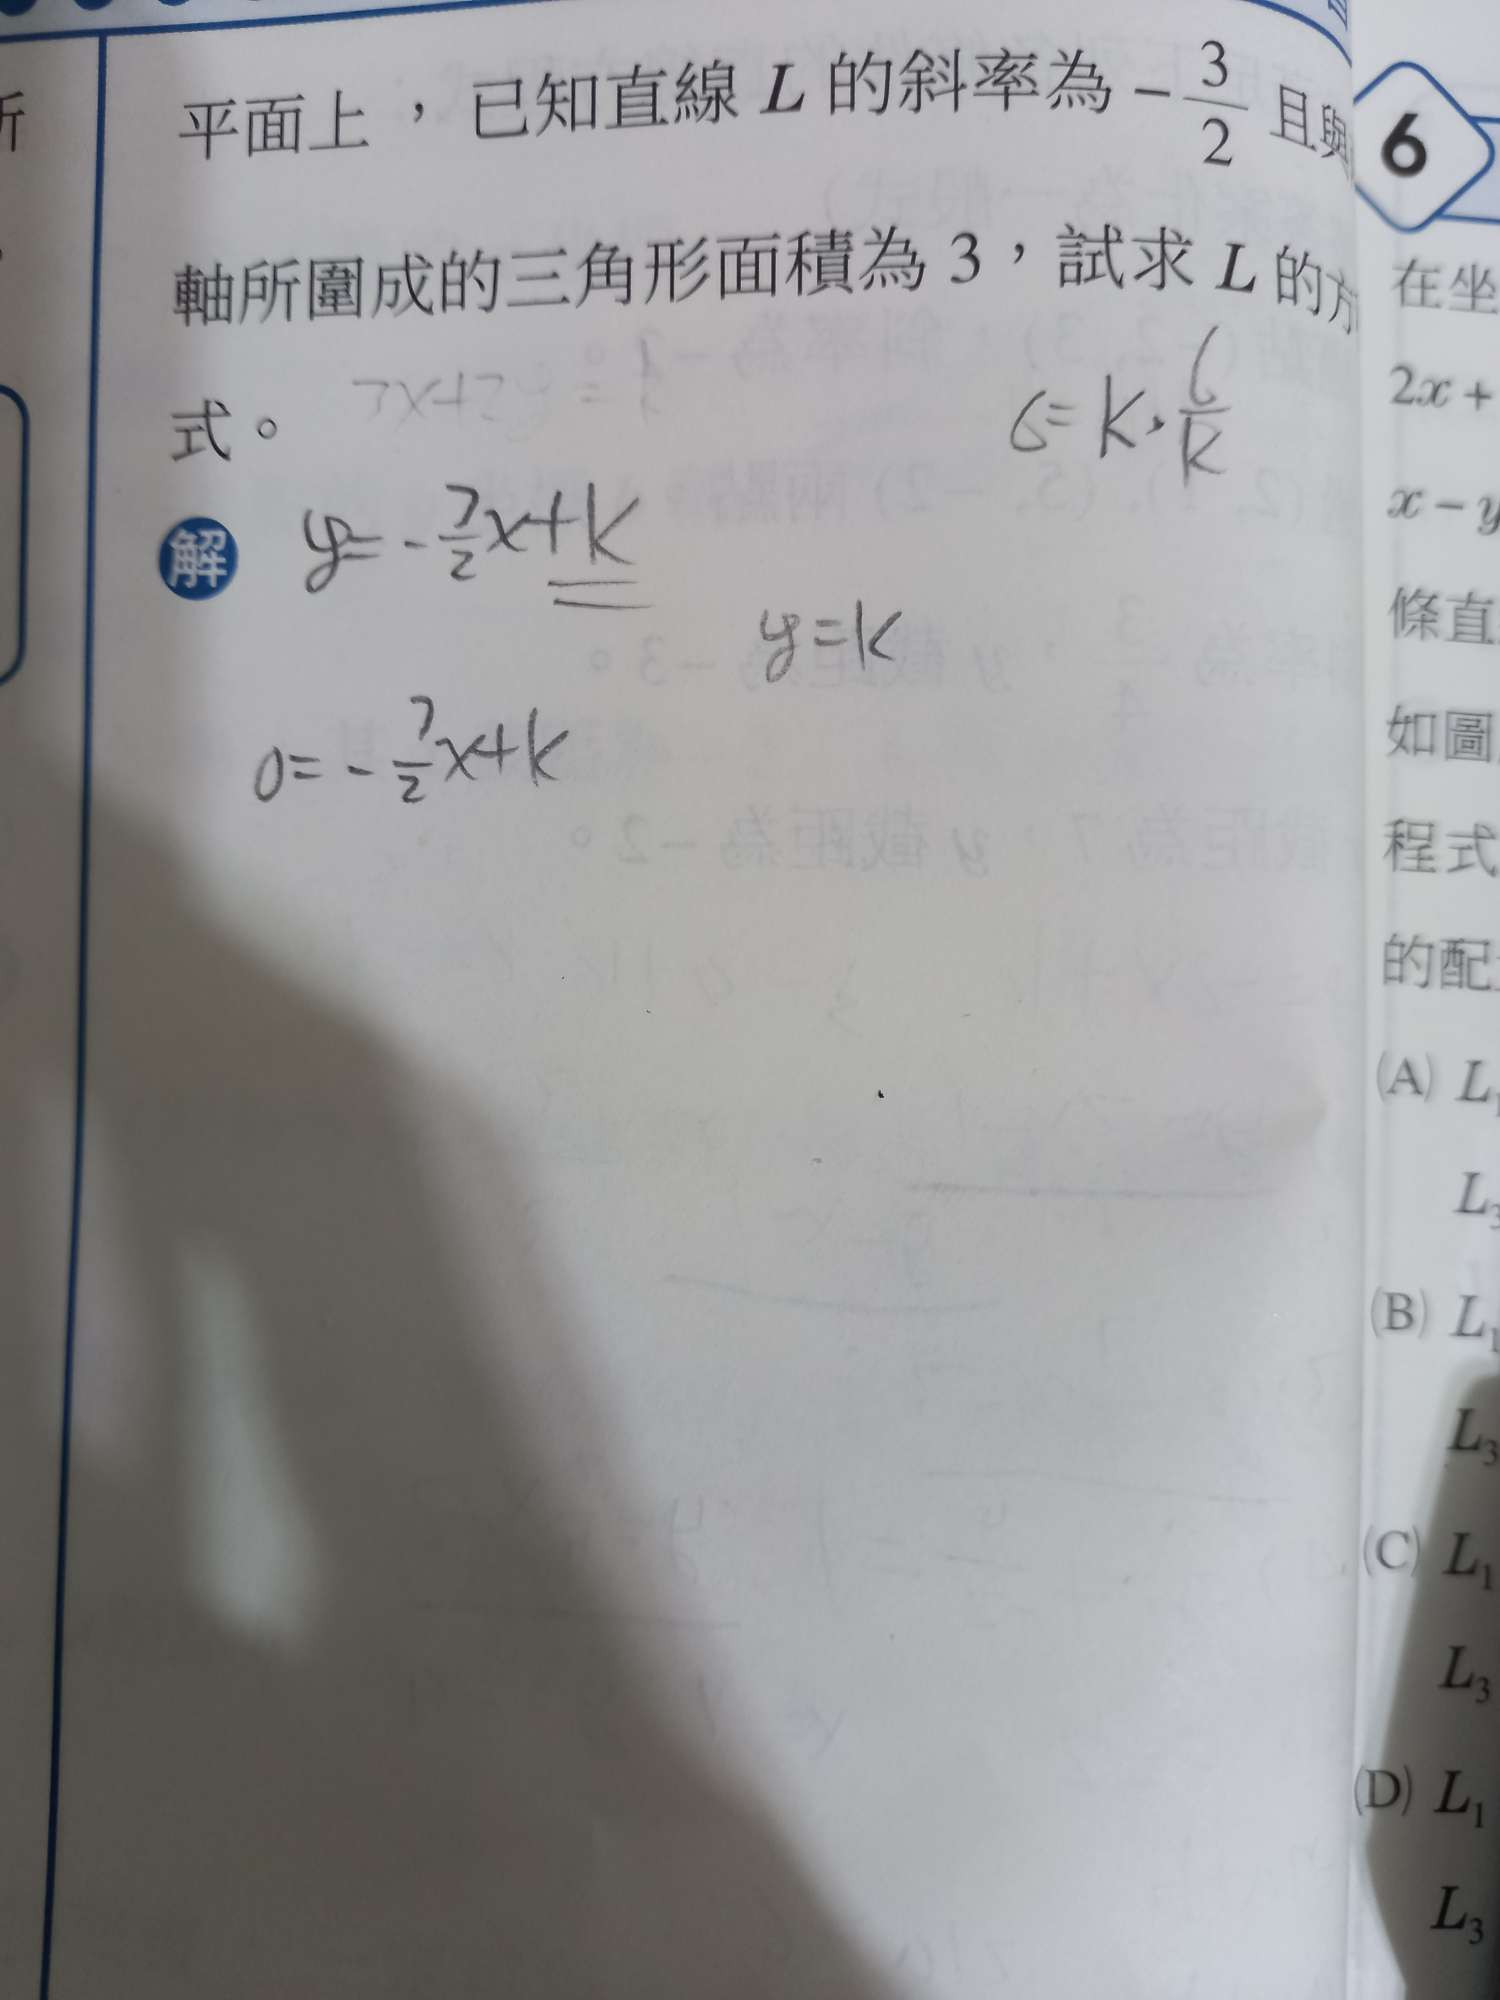 所
平面上，已知直線 L 的斜率為 -3/2 且與
軸所圍成的三角形面積為 3，試求 L 的方
式。
6=k·6/k
解
y=-3/2x+k
y=k
0=-3/2x+k
6
在坐
2x+
x-y
條直
如圖
程式
的配
(A) L₁
L₃
(B) L₁
L₃
(C) L₁
L₃
(D) L₁
L₃